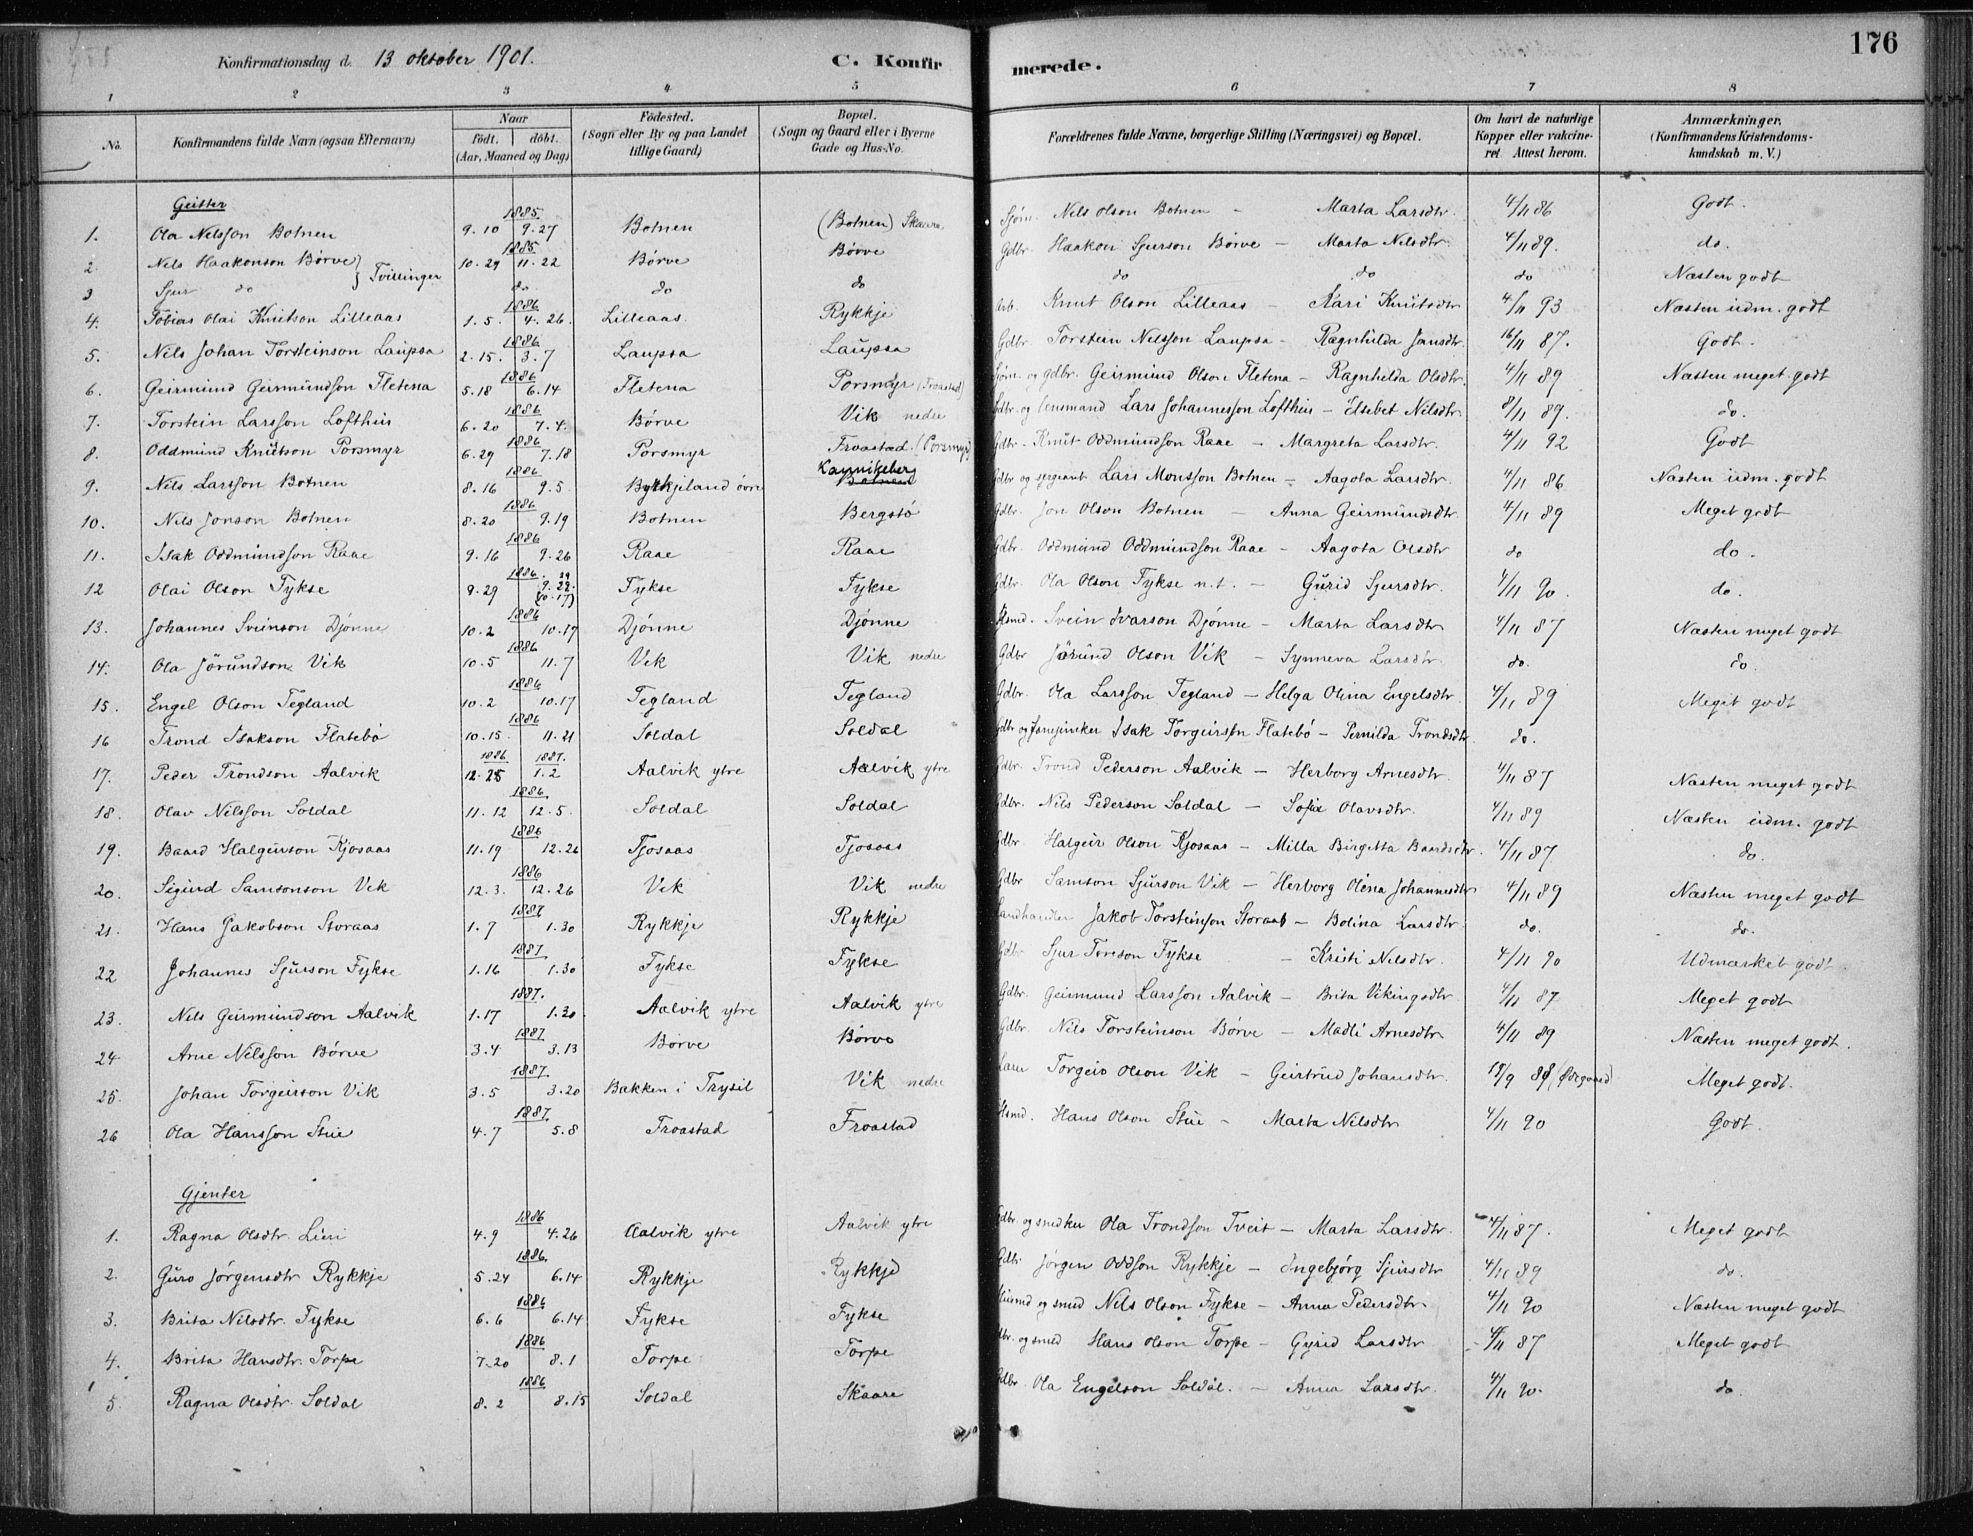 176
Konfirmationsdag d. 13 oktober 1901. C. Konfirmerede.
1 2 3 4 5 6 7 8
No. Konfirmandens fulde Navn (ogsaa Efternavn) Naar födt. döbt. (Aar, Maaned og Dag) Födested. (Sogn eller By og paa Landet tillige Gaard) Bopæl. (Sogn og Gaard eller i Byerne Gade og Hus-No. Forældrenes fulde Navne, borgerlige Stilling (Næringsvei) og Bopæl. Om havt de naturlige Kopper eller vakcineret. Attest herom. Anmærkninger. (Konfirmandens Kristendomskundskab m. V.)
Geitter
1. Ola Nilsson Botnen 1885 9.10 9.27 Botnen (Botnen) Skaare Sjøm. Nils Olson Botnen - Marta Larsdtr. 4/11 86 Godt.
2. Nils Haakonson Børve } Tvillinger 1885 10.29 11.22 Børve Børve Gdbr. Haakon Sjurson Børve - Marta Nilsdtr. 4/11 89. do.
3 Sjur do do do do do do do Næsten godt
4. Tobias Olai Knutson Lilleaas 1886 1.5. 4.26. Lilleaas. Rykkje Arb. Knut Olson Lilleaas - Kari Knutsdtr 4/11 93 Næsten udm. godt
5. Nils Johan Torsteinson Laupsa 1886 2.15. 3.7 Laupsa Laupsa Gdbr Torstein Nilsson Laupsa - Ragnhilda Jansdtr. 16/11 87. Godt.
6. Geirmund Geirmundson Fletena 1886 5.18 6.14 Fletena Porsmyr (Froastad) Sjøm. og gdbr. Geirmund Olson Fletena - Ragnhilda Olsdtr. 4/11 89 Næsten meget godt
7. Torstein Larsson Lofthus 1886 6.20 7.4. Børve Vik nedre Gdbr. og lensmand Lars Johannesson Lofthus - Elsebet Nilsdtr 8/11 89. do.
8. Oddmund Knutson Porsmyr 1886 6.29 7.18 Porsmyr Froastad. (Porsmyr) Gdbr. Knut Oddmundson Raae - Margreta Larsdtr. 4/11 92 Godt
9. Nils Larsson Botnen 1886 8.16 9.5 Byrkjeland övre Kaurikeberg Botnen Gdbr og sergeant Lars Monsson Botnen - Aagota Larsdtr. 4/11 86 Næsten udm. godt
10. Nils Jonson Botnen 1886 8.20 9.19 Botnen Bergstö Gdbr. Jon Olson Botnen - Anna Geirmundsdtr. 4/11 89 Meget godt
11. Isak Oddmundson Raae 1886 9.16 9.26 Raae Raae Gdbr. Oddmund Oddmundson Raae - Aagota Olsdtr do do.
12 Olai Olson Fykse 1886. 9.29 9.29. (10.17) Fykse Fykse Gdbr. Ola Olson Fykse n.t. - Gurid Sjursdtr. 4/11 90. do.
13. Johannes Sveinson Djönne 1886 10.2 10.17 Djönne Djönne Hsmd. Svein Ivarson Djönne - Marta Larsdtr 4/11 87 Næsten meget godt
14. Ola Jörundson Vik 1886 10.5 11.7 Vik Vik nedre Gdbr Jørund Olson Vik - Synneva Larsdtr. do. do.
15. Engel Olson Tegland 1886 10.2 10.17 Tegland Tegland Gdbr. Ola Larsson Tegland - Helga Olina Engelsdtr. 4/11 89 Meget godt
16 Trond Isakson Flatebö 1886 10.15. 11.21 Soldal Soldal Gdbr og Isak Torgeirson Flatebö - Pernilda Trondsdtr. do.
17. Peder Trondson Aalvik 1886 1887. 12.25 1.2 Aalvik ytre Aalvik ytre Gdbr. Trond Pederson Aalvik - Herborg Arnesdtr. 4/11 87 Næsten meget godt
18. Olav Nilsson Soldal 1886. 11.12 12.5. Soldal Soldal Gdbr. Nils Pederson Soldal - Sofia Olavsdtr. 4/11 89 Næsten udm. godt
19. Baard Halgeirson Kjosaas 1886 11.19 12.26 Tjosaas Tjosaas Gdbr. Halgeir Olson Kjosaas - Milla Birgetta Baardsdtr. 4/11 87 do.
20. Sigurd Samsonson Vik 1886 12.3. 12.26 Vik Vik nedre Gdbr Samson Sjurson Vik - Herborg Olena Johannesdtr 4/11 89 Næsten meget godt
21. Hans Jakobson Storaas 1887 1.7 1.30 Rykkje Rykkje Landhandler Jakob Torsteinson Storaas - Bolina Larsdtr. do. do.
22 Johannes Sjurson Fykse 1887. 1.16 1.30 Fykse Fykse Gdbr Sjur Toreson Fykse - Kristi Nilsdtr. 4/11 90 Udmærket godt.
23. Nils Geirmundson Aalvik 1887. 1.17 1.30 Aalvik ytre Aalvik ytre Gdbr. Geirmund Larsson Aalvik - Brita Vikingsdtr. 4/11 87 Meget godt
24 Arne Nilsson Børve 1887 3.4 3.13 Børve Børve Gdbr. Nils Torsteinson Børve - Madli Arnesdtr 4/11 89 Næsten meget godt.
25. Johan Torgeirson Vik 1887. 3.5 3.20 Bakken i Trysil Vik nedre Torgeir Olson Vik - Geirtrud Johansdtr. (Ødegaard) Meget godt.
26 Ola Hansson Stue 1887. 4.7 5.8 Froastad Froastad Hsmd. Hans Olson Stue - Marta Nilsdtr 4/11 90 Godt.
Gjenter
1. Ragna Olsdtr. Lien 1886 4.9 4.26 Aalvik ytre Aalvik ytre Gdbr. og snedker Ola Trondson Tveit - Marta Larsdtr. 4/11 87. Meget godt
2. Guro Jörgensdtr Rykkje 1886. 5.24 6.14 Rykkje Rykkje Gdbr. Jørgen Oddson Rykkje - Ingebjørg Sjursdtr 4/11 89 do.
3. Brita Nilsdtr. Fykse 1886 6.6 6.14 Fykse Fykse Husmd og smed Nils Olson Fykse - Anna Pedersdtr. 4/11 90 Næsten meget godt
4. Brita Hansdtr. Torpe 1886 7.20 8.1 Torpe Torpe Gdbr. og smed Hans Olson Torpe - Gyrid Larsdtr 4/11 87 Meget godt
5. Ragna Olsdtr. Soldal 1886 8.2 8.15 Soldal Skaare Gdbr. Ola Engelson Soldal. - Anna Larsdtr. 4/11 90. do.